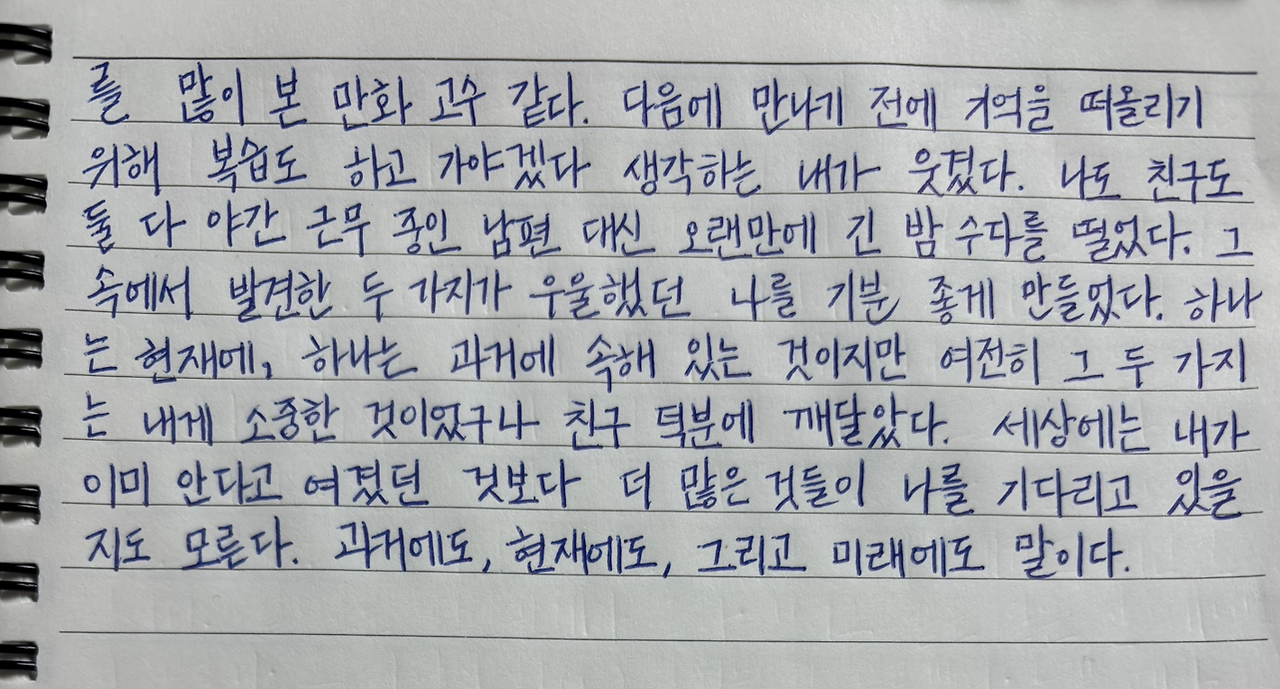 를 많이 본 만화 고수 같다. 다음에 만나기 전에 기억을 떠올리기
위해 복습도 하고 가야겠다 생각하는 내가 웃겼다. 나도 친구도
둘 다 야간 근무 중인 남편 대신 오랜만에 긴 밤 수다를 떨었다. 그
속에서 발견한 두 가지가 우울했던 나를 기분 좋게 만들었다. 하나
는 현재에, 하나는 과거에 속해 있는 것이지만 여전히 그 두 가지
는 내게 소중한 것이었구나 친구 덕분에 깨달았다. 세상에는 내가
이미 안다고 여겼던 것보다 더 많은 것들이 나를 기다리고 있을
지도 모른다. 과거에도, 현재에도, 그리고 미래에도 말이다.